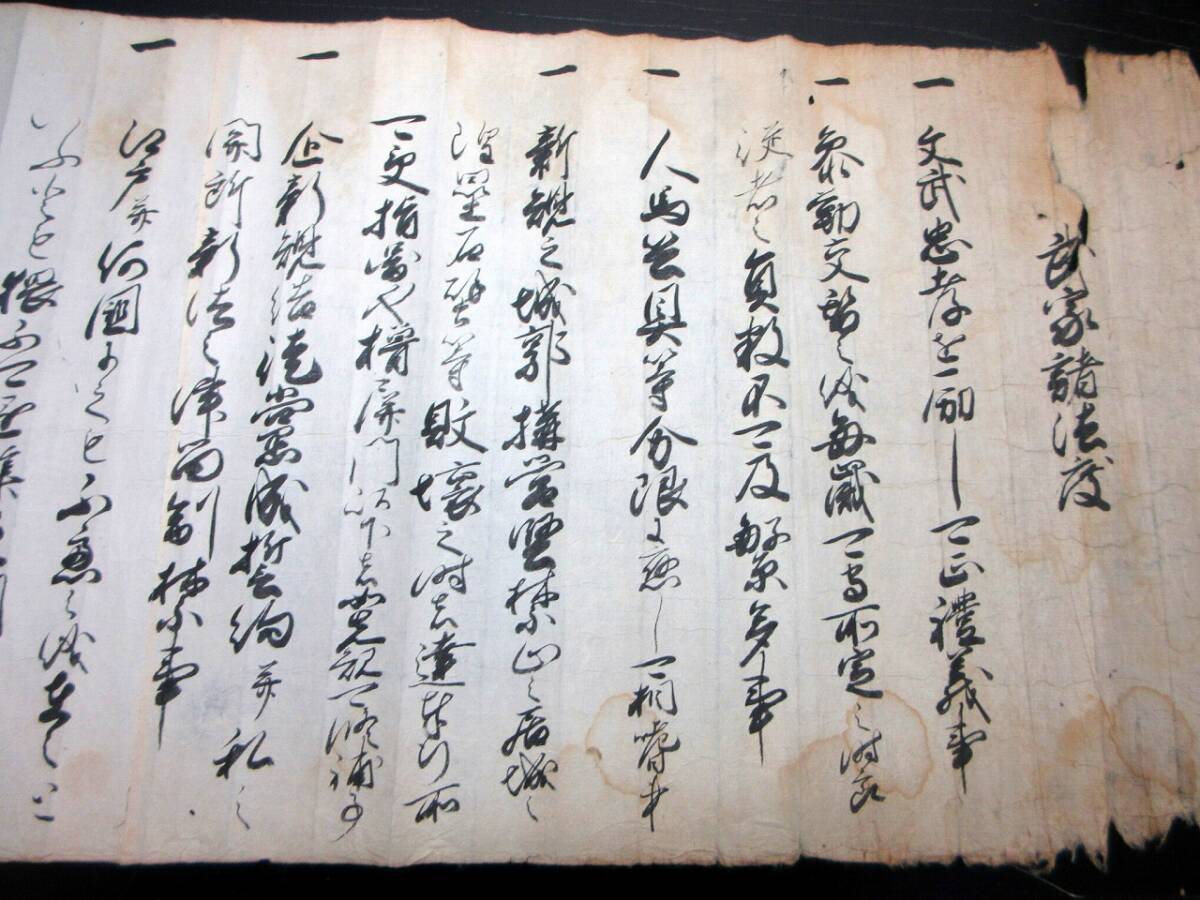 武家諸法度
一 文武忠孝を励し可正禮義事
一 参勤交替之儀毎歳可守所定之時節
従者之員数不可及繁多事
一 人馬兵具等分限に應し可相嗜事
一 新規之城郭搆営堅禁止之居城之
隍塁石壁等敗壊之時者達奉行所
可受指図也櫓塀門以下者如先規可修補事
一 企新規結徒黨成誓約并私之
関所新法之津留制禁事
一 江戸并何國においても不慮之儀在之
いふとも猥不可